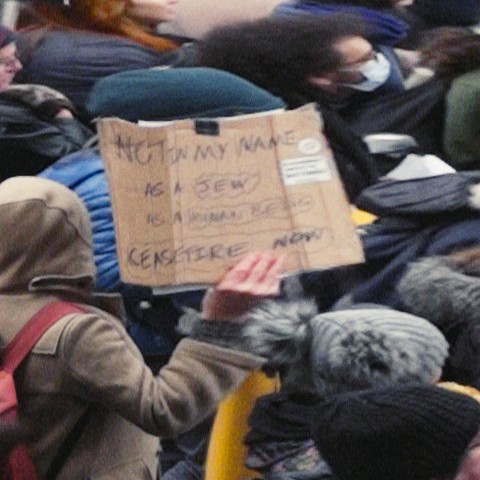 NOT IN MY NAME
AS A JEW
AS A HUMAN BEING
CEASEFIRE